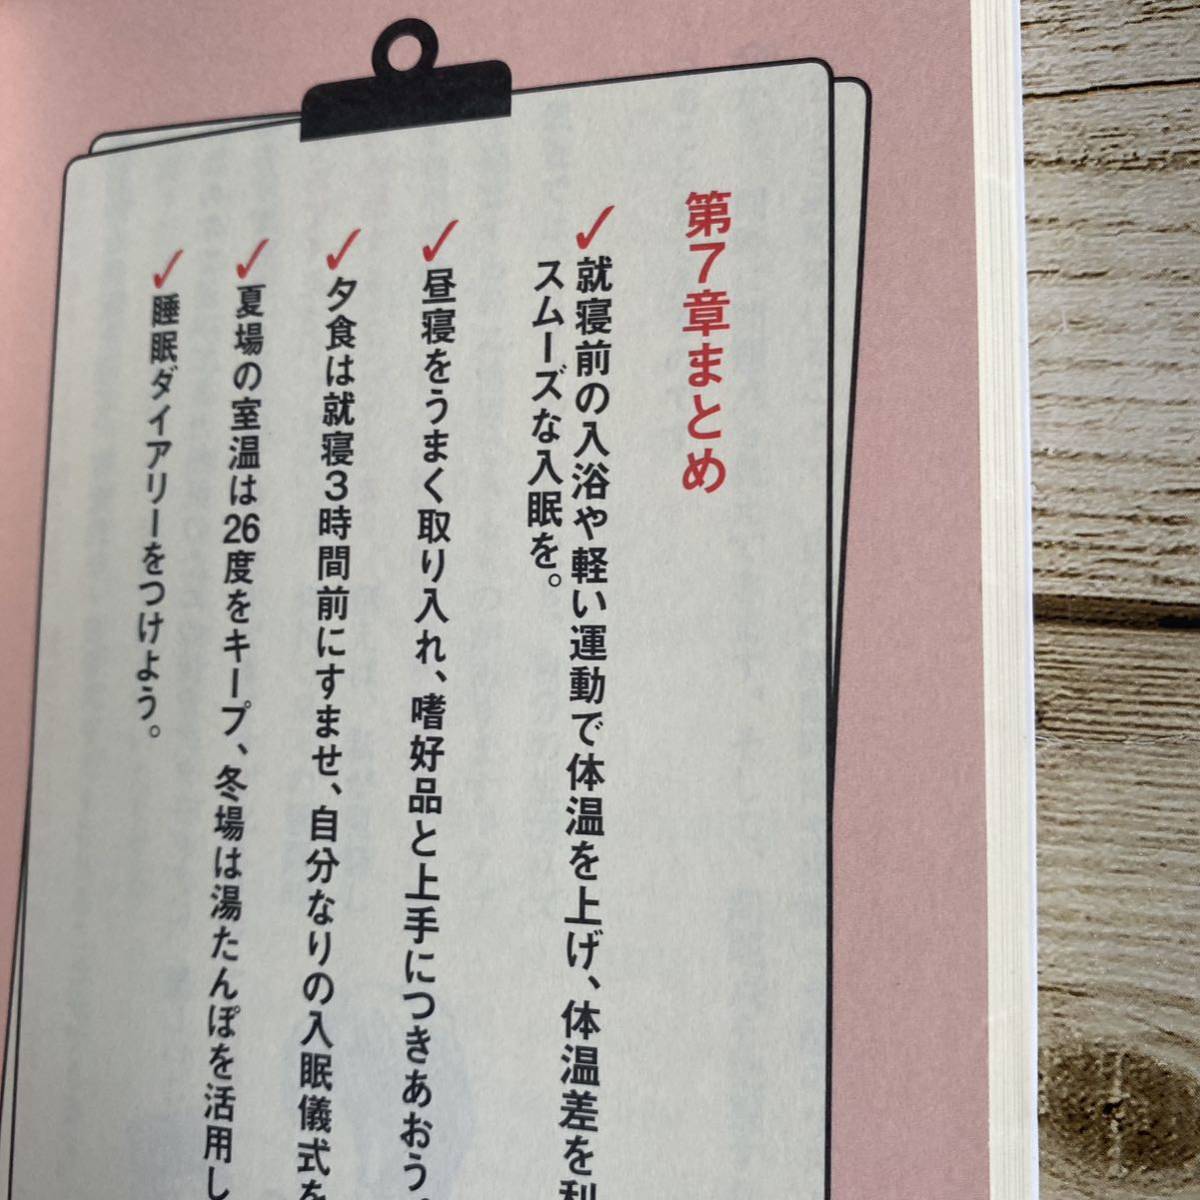 第7章まとめ
✓就寝前の入浴や軽い運動で体温を上げ、体温差を利
スムーズな入眠を。
✓昼寝をうまく取り入れ、嗜好品と上手につきあおう。
✓夕食は就寝3時間前にすませ、自分なりの入眠儀式を
✓夏場の室温は26度をキープ、冬場は湯たんぽを活用し
✓睡眠ダイアリーをつけよう。